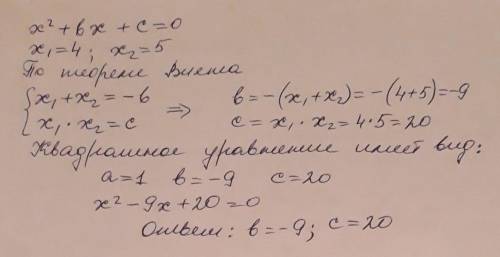 x² + bx + c = 0
x₁ = 4 ; x₂ = 5
По теореме Виета
{ x₁ + x₂ = -b ⇒ b = -(x₁ + x₂) = -(4+5) = -9
{ x₁ · x₂ = c c = x₁ · x₂ = 4 · 5 = 20
Квадратное уравнение имеет вид:
a = 1 b = -9 c = 20
x² - 9x + 20 = 0
Ответ: b = -9 ; c = 20